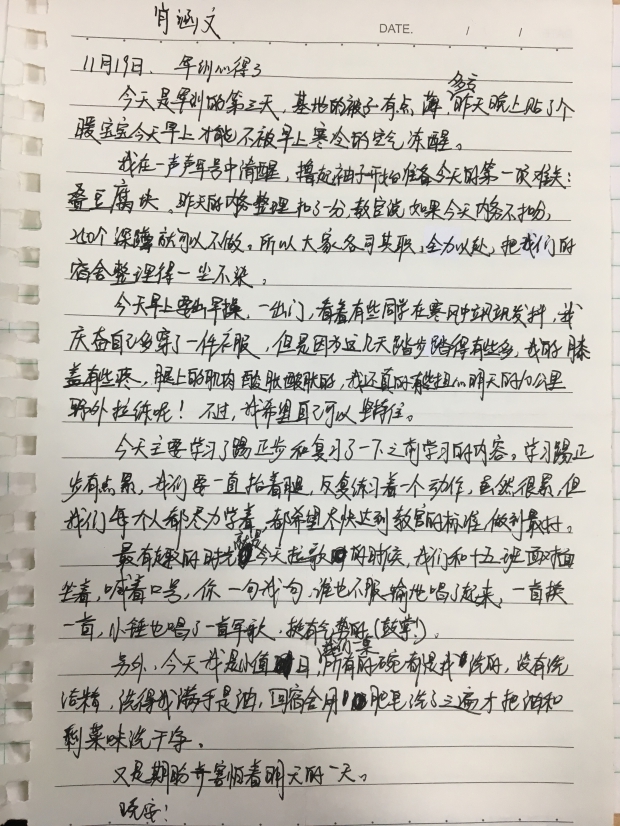 肖涵文
DATE. / /
11月19日、军训心得3
今天是军训的第三天,基地的被子有点薄,多亏昨天晚上贴了个
暖宝宝今天早上才能不被早上寒冷的空气冻醒。
我在一声声军号中清醒,撸起袖子开始准备今天的第一项难关:
叠豆腐块。昨天的内务整理扣了一分,教官说如果今天内务不扣分,
240个深蹲就可以不做。所以大家各司其职,全力以赴,把我们的
宿舍整理得一尘不染。
今天早上要出早操,一出门,看着有些同学在寒风中瑟瑟发抖,我
庆奋自己多穿了一件衣服,但是因为这几天踏步踏得有些多,我的膝
盖有些疼,腿上的肌肉酸酸的,我还真的有些担心明天的10公里
野外拉练呢!不过,我希望自己可以坚持住。
今天主要学习了踢正步和复习了一下之前学习的内容。学习踢正
步有点累,我们要一直抬着腿,反复练习着一个动作,虽然很累,但
我们每个人都尽力学着,都希望尽快达到教官的标准,做到最好。
最有趣的时光就是今天拉歌的时候,我们和十五班面对面
坐着,喊着口号,你一句我一句,谁也不服输地唱了起来,一首接
一首,小锤也唱了一首军歌,挺有气势的(鼓掌)。
另外,今天我是小值日,我们一桌所有的碗都是我洗的,没有洗
洁精,洗得我满手是油,回宿舍用肥皂洗了三遍才把油和
剩菜味洗干净。
又是期盼并害怕着明天的一天。
晚安!